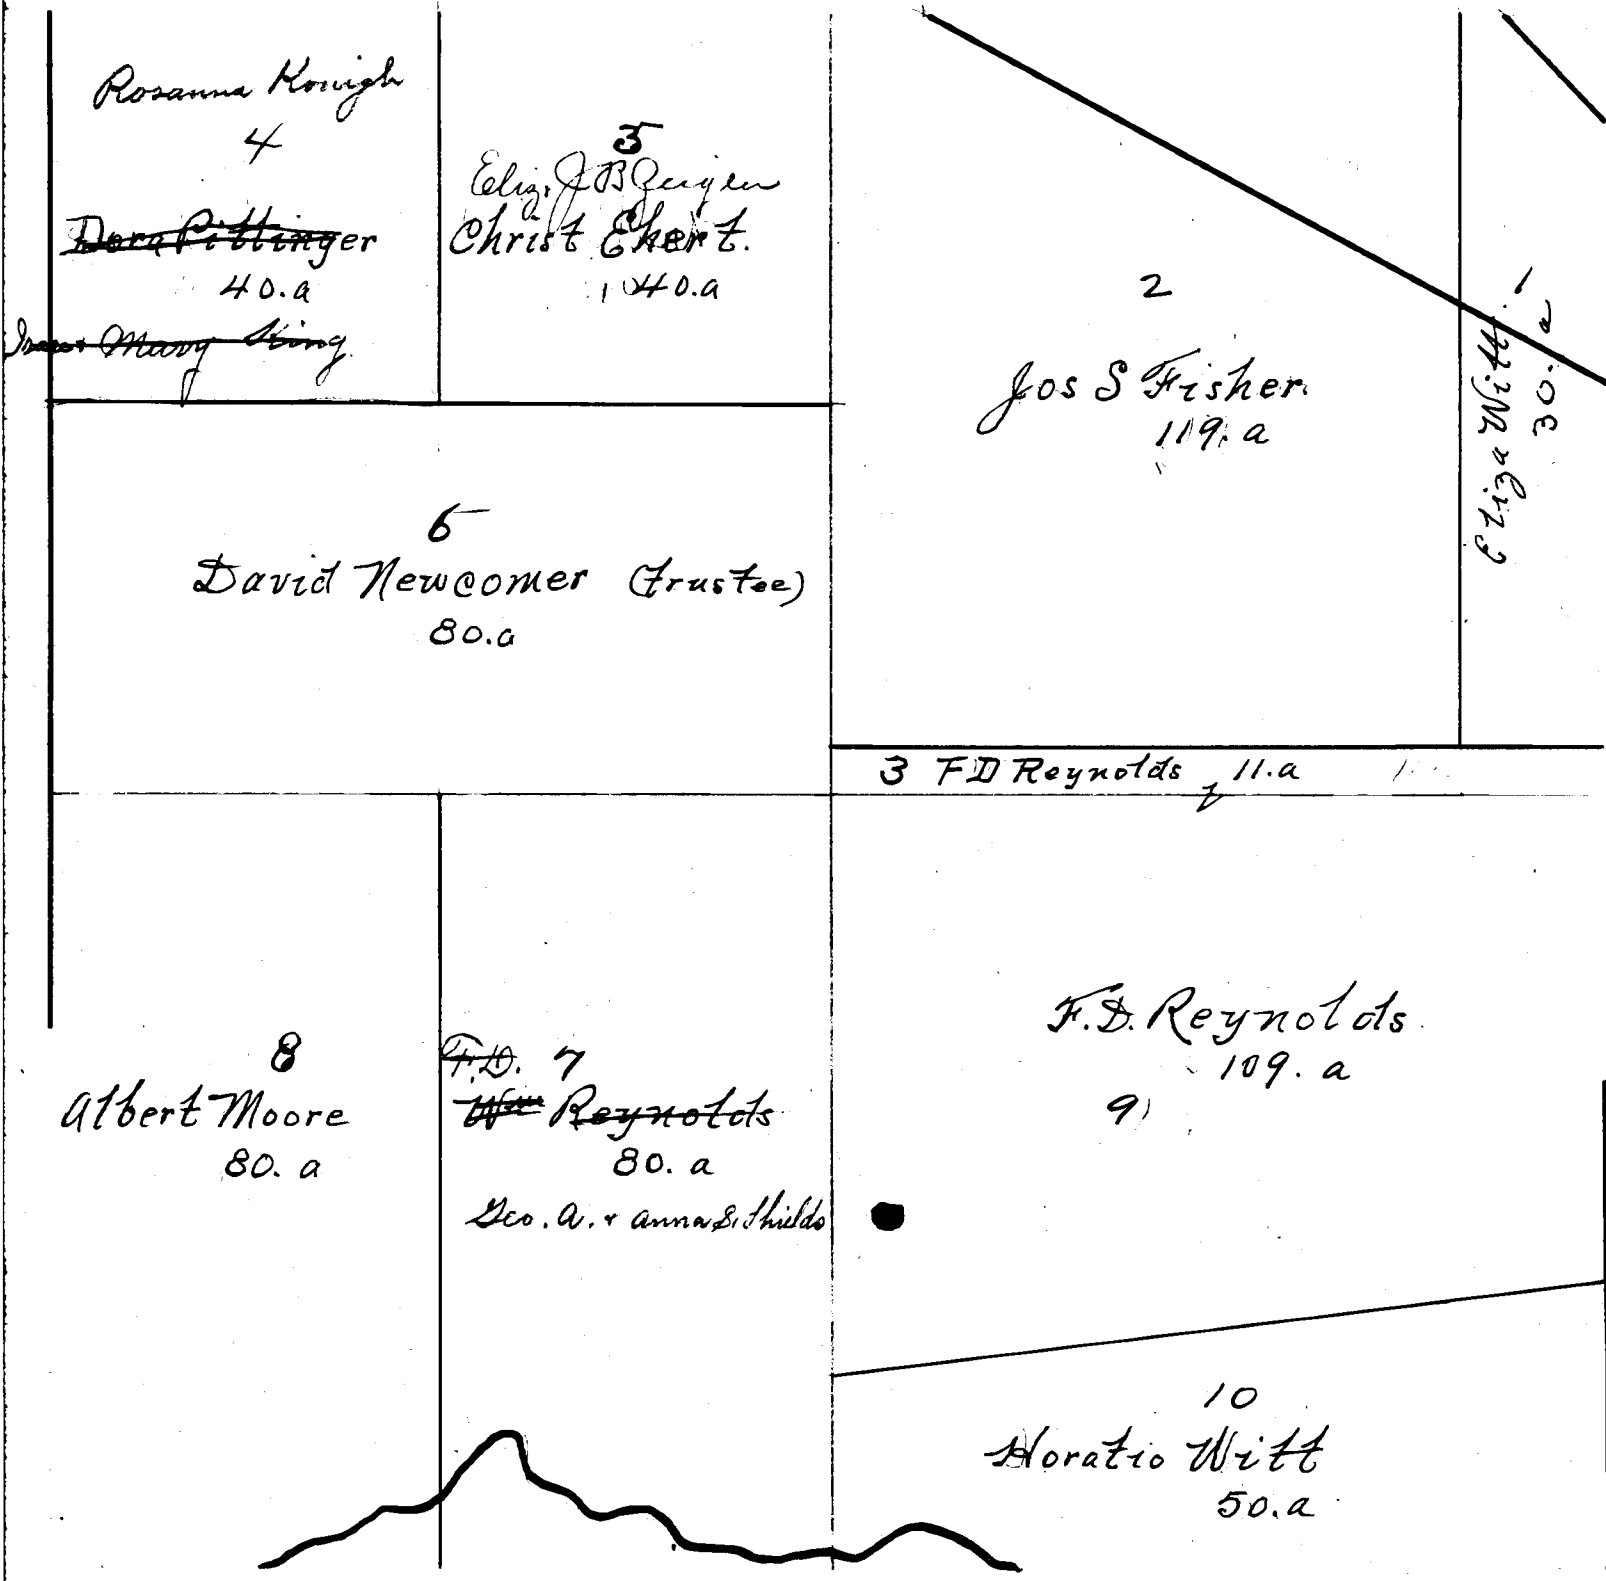 Rosanna Konigh
4
Dora Pittinger
40.a
Mary King
5
Eliz. J B Zeigler
Christ Ekert.
40.a
2
Jos S Fisher.
119. a
1
Eliza Witt.
30. a
6
David Newcomer (trustee)
80.a
3 FD Reynolds 11.a
8
Albert Moore
80. a
F.D. 7
Wm Reynolds
80. a
Geo. A. + Anna S. Shields
F.D. Reynolds.
109. a
9)
10
Horatio Witt
50.a